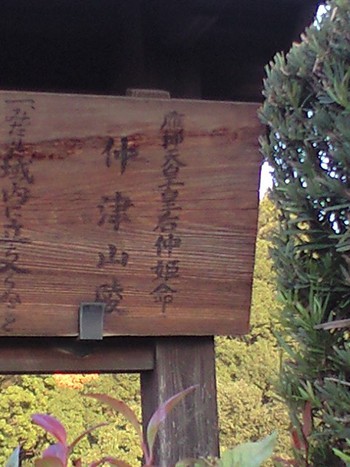 應神天皇皇后仲姫命
仲津山陵
一、みだりに域内に立ち入らぬこと